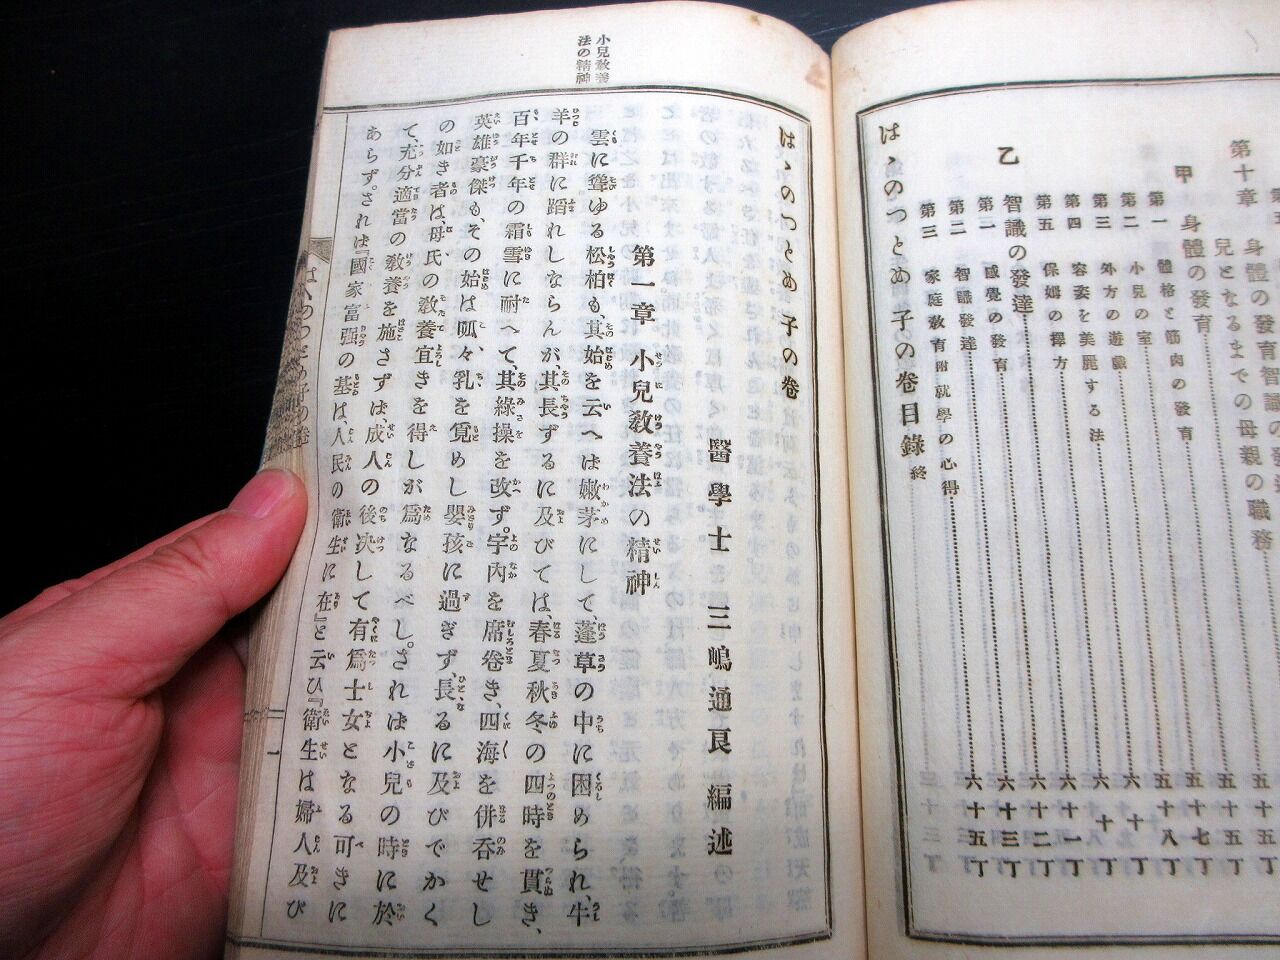 第十章
身體の發育智識の發達
兒となるまでの母親の職務
甲 身體の發育 五十五丁
第一 體格と筋肉の發育 五十七丁
第二 小兒の室 五十八丁
第三 外方の遊戲 六十丁
第四 容姿を美麗する法 六十丁
第五 保姆の擇方 六十一丁
乙 智識の發達 六十二丁
第一 感覺の發育 六十三丁
第二 智識發達 六十五丁
第三 家庭敎育附就學の心得
はゝのつとめ子の卷目錄終
小兒敎養法の精神
はゝのつとめ 子の卷
醫學士 三嶋通良編述
第一章 小兒敎養法の精神
雲に聳ゆる松柏も、其始を云へは嫩芽にして、蓬草の中に困められ、牛
羊の群に蹈れしならんが、其長ずるに及びては、春夏秋冬の四時を貫き、
百年千年の霜雪に耐へて、其綠操を改ず。宇內を席卷き、四海を併呑せし
英雄豪傑も、その始は呱々、乳を覓めし嬰孩に過ぎず、長るに及びでかく
の如き者は、母氏の敎養宜きを得しが爲なるべし。されは小兒の時に於
て、充分適當の敎養を施さずは、成人の後决して有爲士女となる可きに
あらず。されは『國家富强の基は、人民の衛生に在』と云ひ『衛生は婦人及び
はゝのつとめ子の卷
一